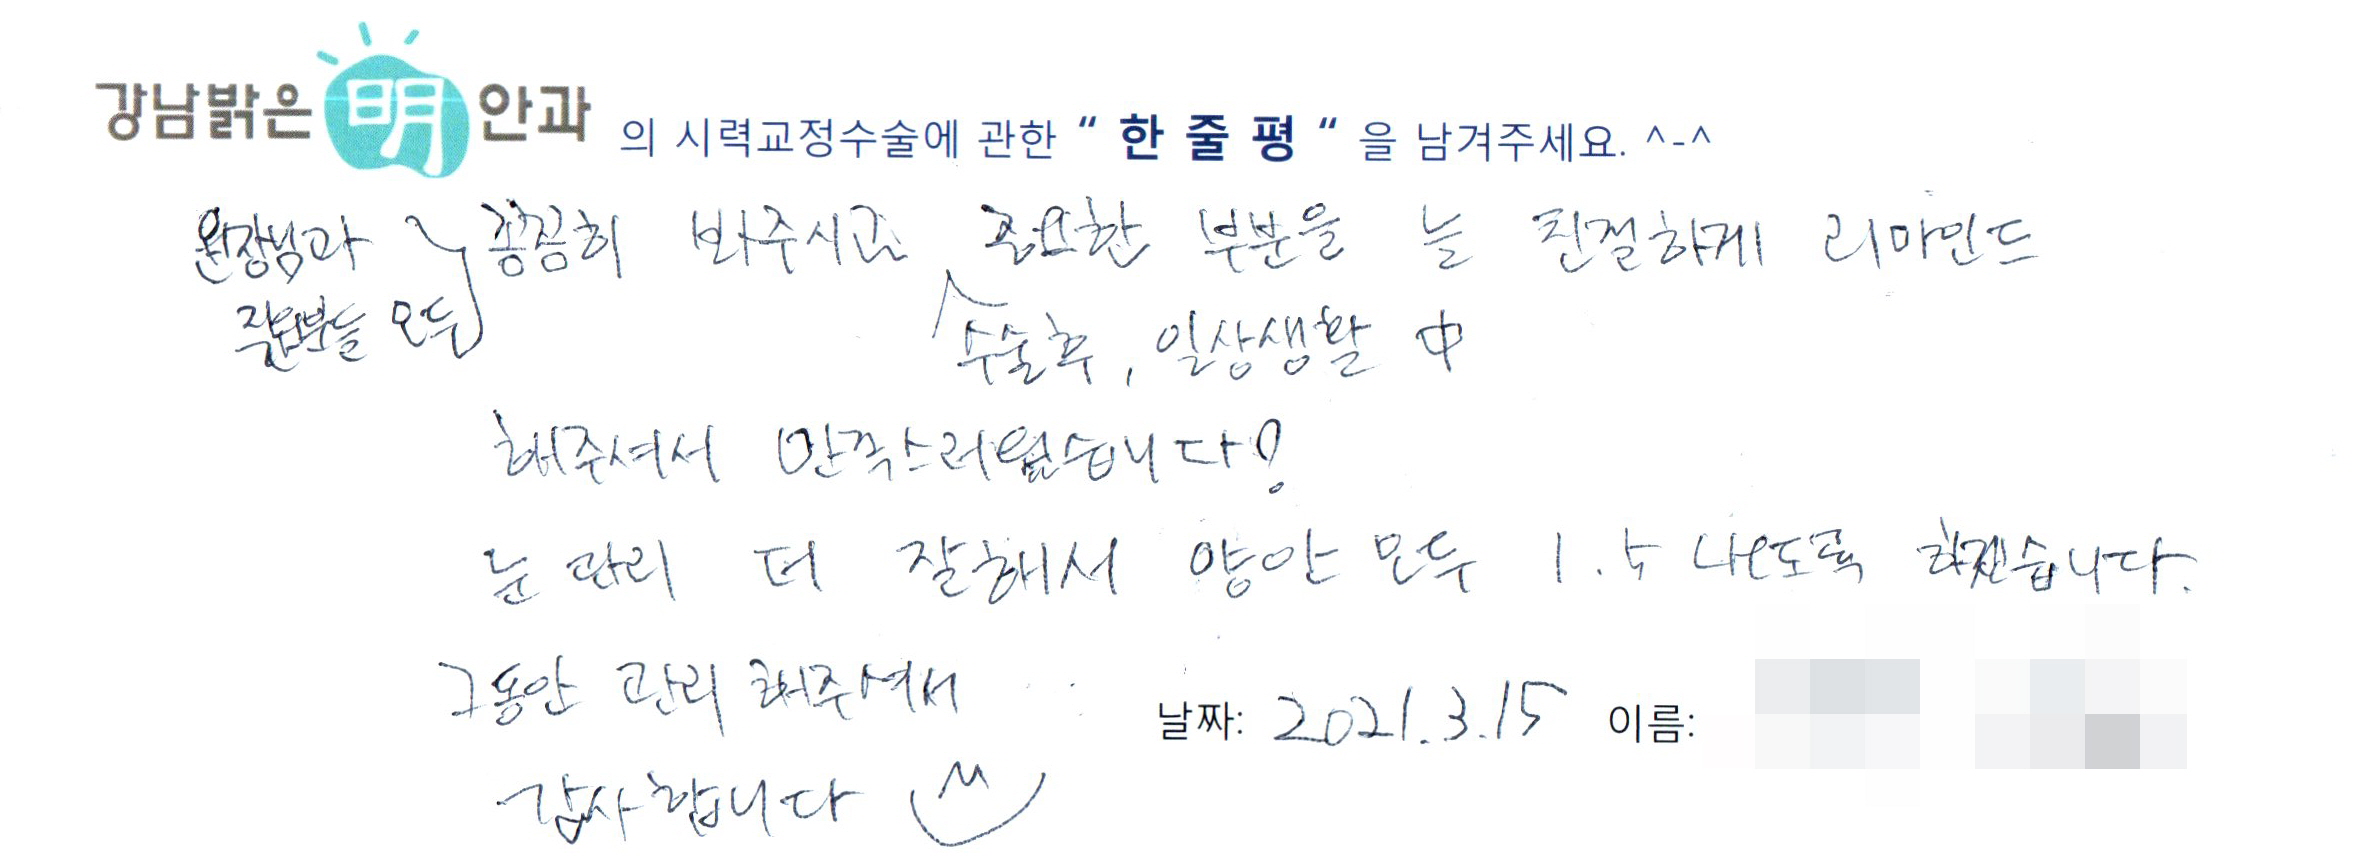 강남밝은 明 안과 의 시력교정수술에 관한 “ 한 줄 평 “ 을 남겨주세요. ^-^
원장님과 꼼꼼히 봐주시고 중요한 부분을 늘 친절하게 리마인드
직원분들 모두 수술후, 일상생활 中
해주셔서 만족스러웠습니다!
눈 관리 더 잘해서 양안 모두 1.5 나오도록 하겠습니다.
그동안 관리 해주셔서
날짜: 2021.3.15 이름:
감사합니다